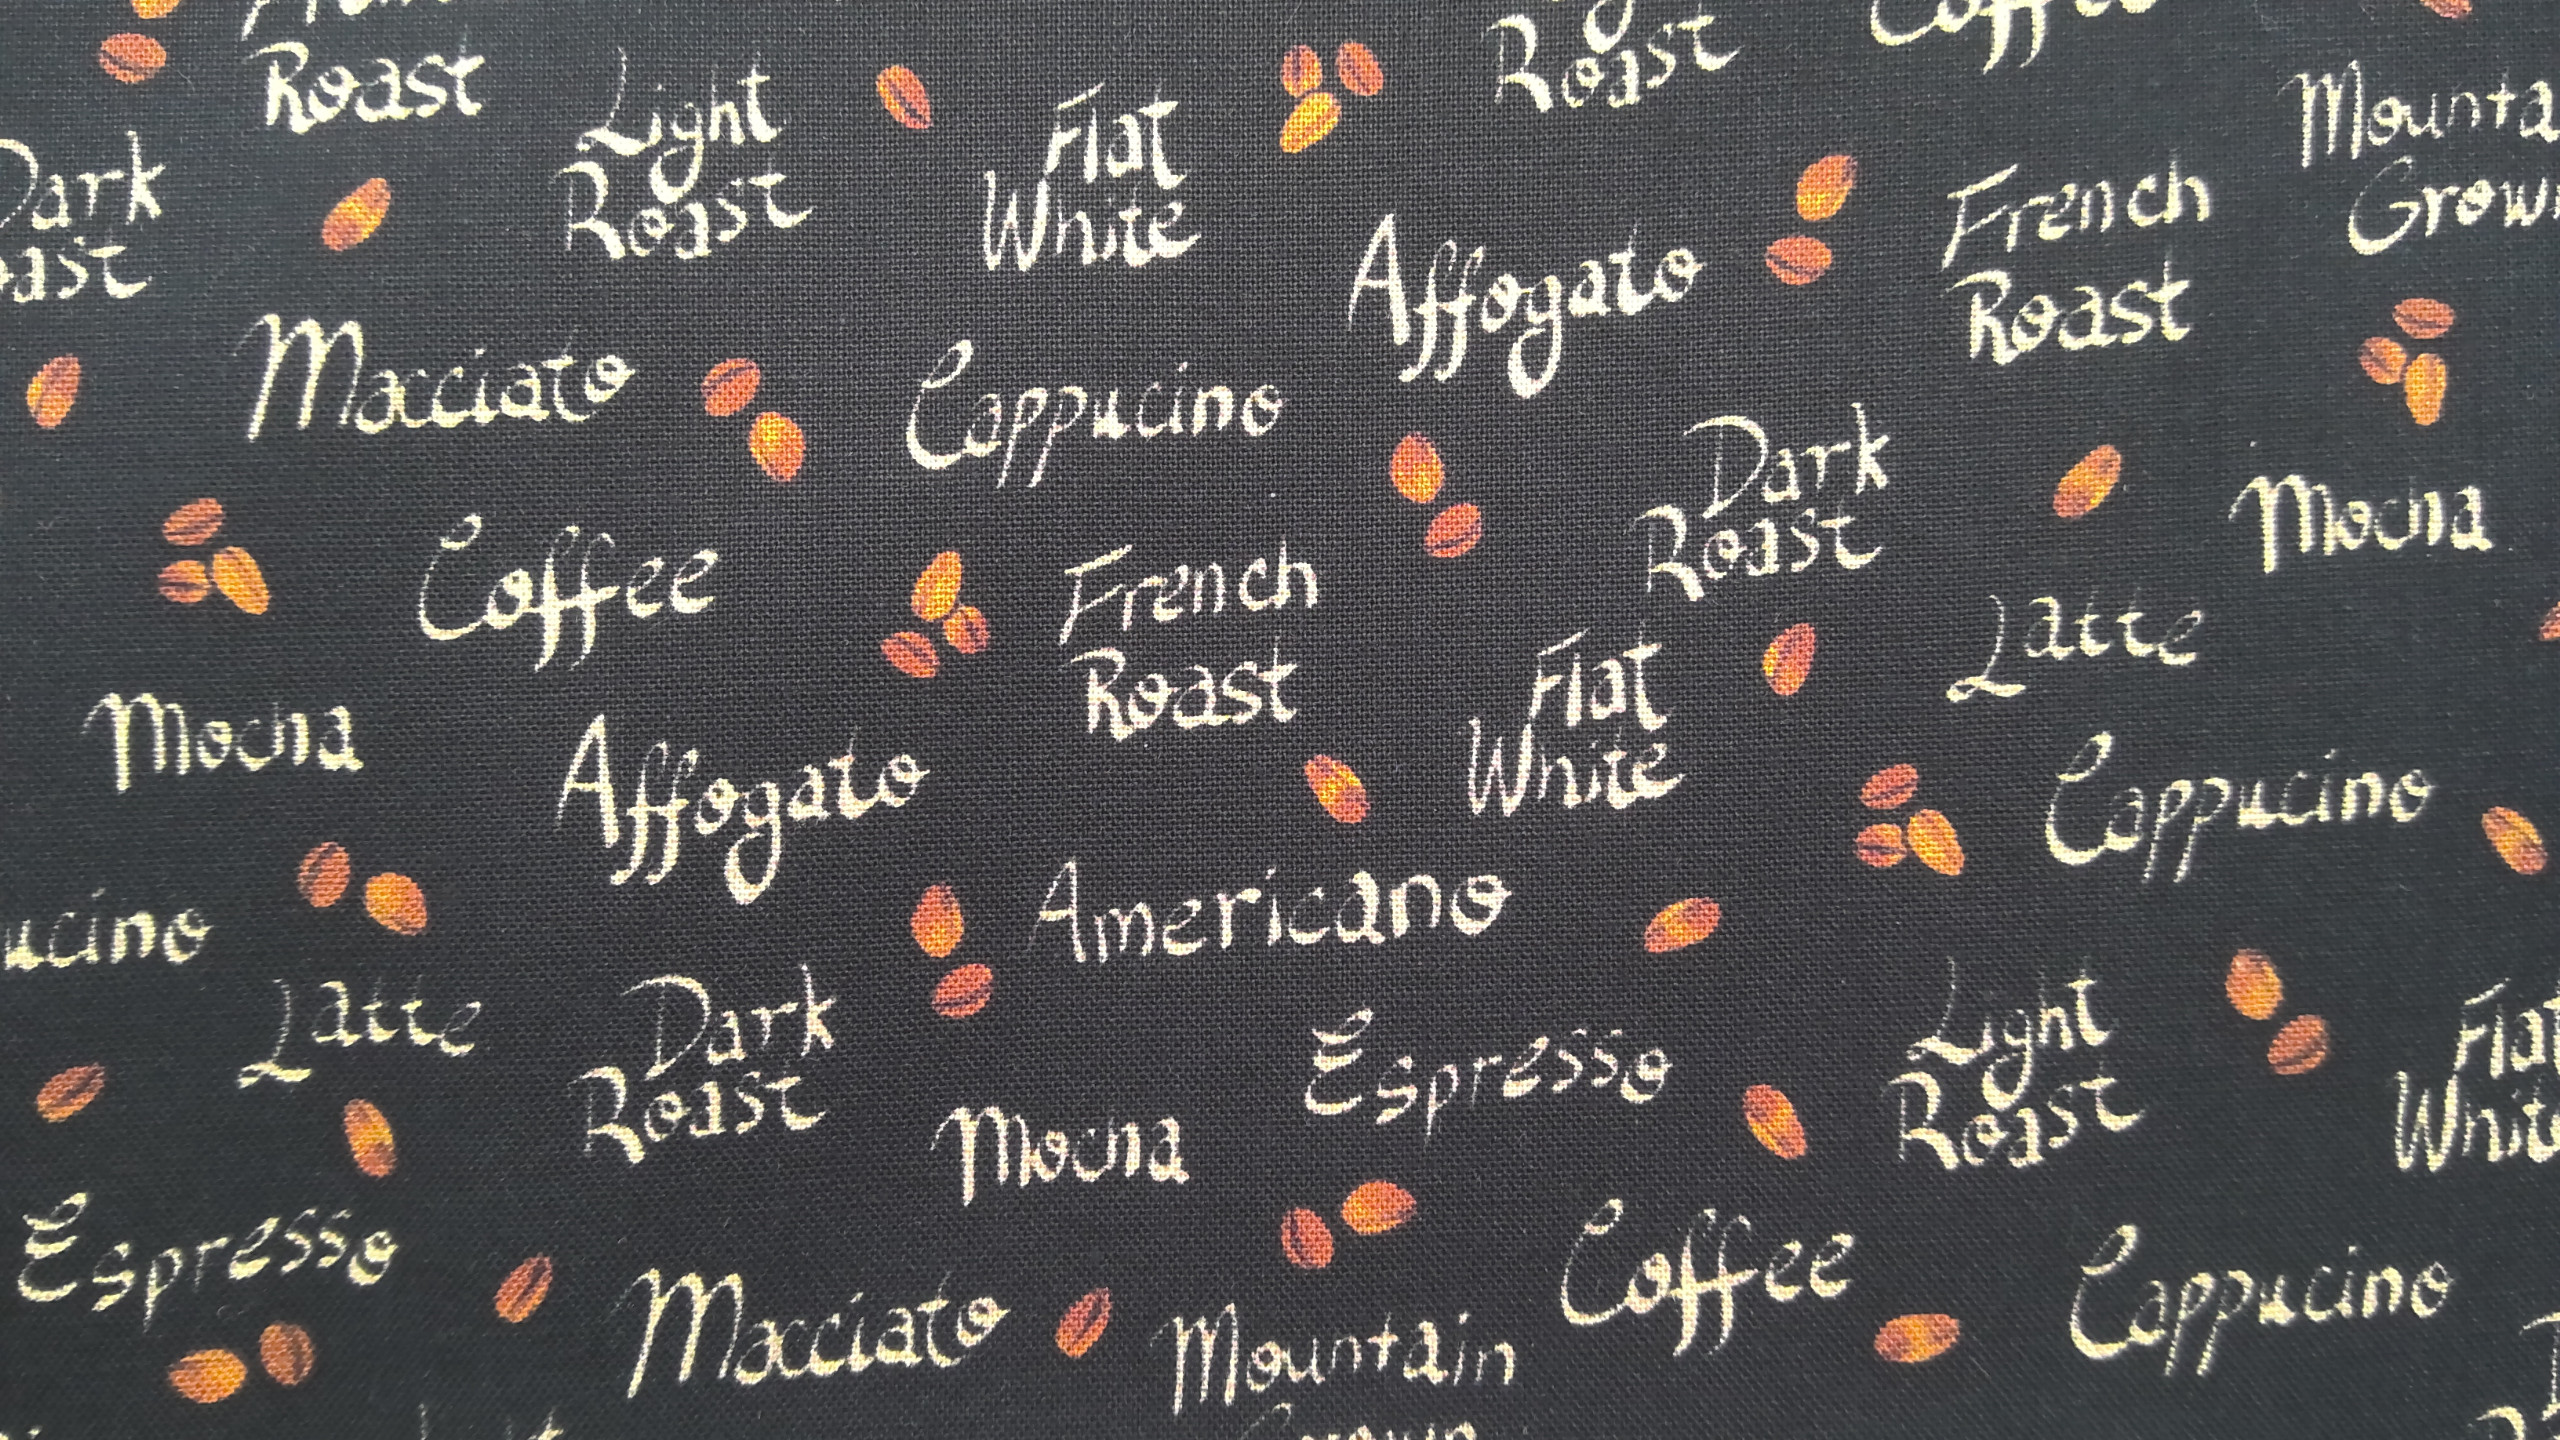 Roast
Coffee
Roast
Light
Roast
Flat
White
Mounta
Grown
Dark
oast
Affogato
French
Roast
Macciato
Cappucino
Dark
Roast
Mocha
Coffee
French
Roast
Latte
Flat
White
Mocha
Affogato
Cappucino
Americano
ucino
Latte
Dark
Roast
Espresso
Light
Roast
Flat
White
Mocha
Espresso
Coffee
Cappucino
Macciato
Mountain
Grown